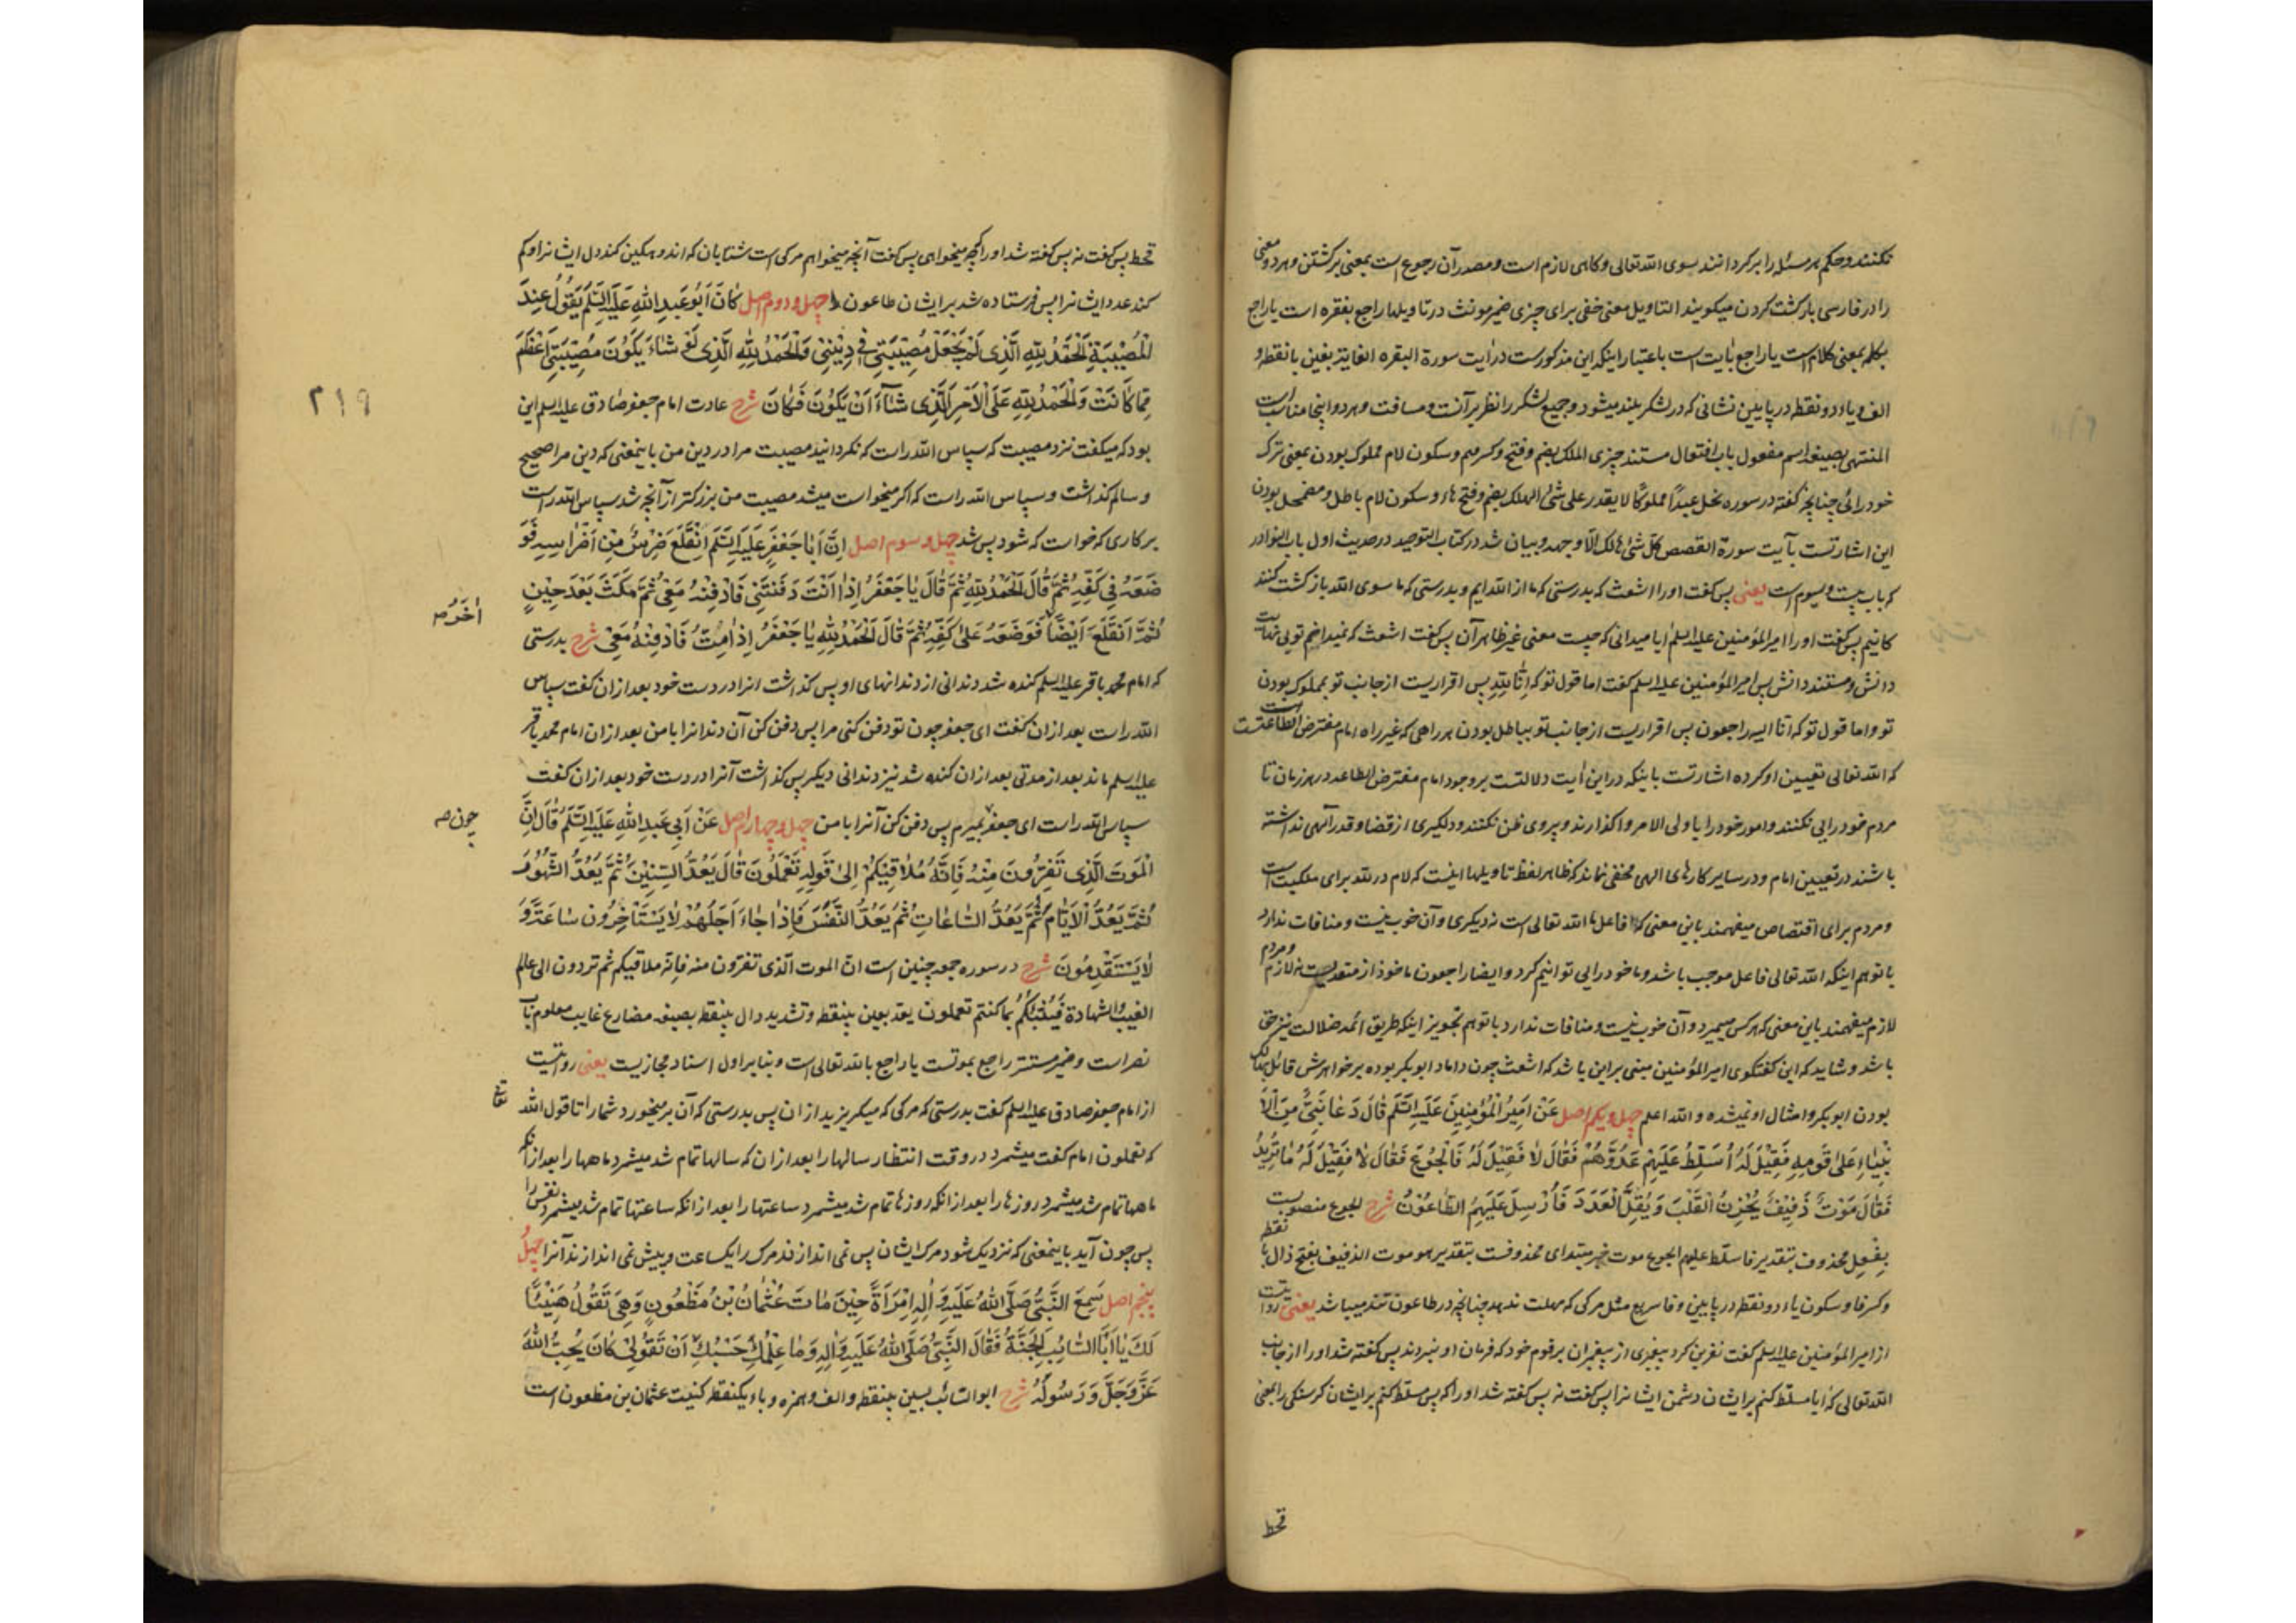 نکنند و حکم هر مسئله را برگردانند بسوی الله تعالی و کاهی لازم است و مصدر آن رجوع است بمعنی برگشتن و هر دو معنی
را در فارسی بازگشت کردن میکویند التاویل معنی خفی برای چیزی ضمیر مونث در تاویلها راجع بفقره است یا راجع
بکلمه بمعنی کلام است یا راجع بایت است باعتبار اینکه این مذکورست در ایت سورة البقره الغایة بغین بانقطه و
الف و یاء دو نقطه در پایین نشانی که در لشکر بلند میشود و جمیع لشکر را نظر بر آنست و مسافت و هر دو اینجا مناسب است
المنتهی بصیغه اسم مفعول باب افتعال مستند چیزی الملک بضم و فتح و کسر میم و سکون لام مملوک بودن بمعنی ترک
خودرائی چنانچه گفته در سوره نحل عبداً مملوکاً لا یقدر علی شیٔ الهلک بضم و فتح هاء و سکون لام باطل و مضمحل بودن
این اشارتست بآیت سورة القصص کلّ شیٔ هالک الّا وجهه و بیان شد در کتاب التوحید در حدیث اول باب النوادر
که باب بیست و سیوم است یعنی پس کفت او را اشعث که بدرستی که ما از الله ایم و بدرستی که ما سوی الله باز کشت کنند
کانیم پس کفت او را امیر المؤمنین علیه السلم ایا میدانی که چیست معنی غیر ظاهر آن پس کفت اشعث که نمیدانم تویی نهایت
دانش و مستند دانش پس امیر المؤمنین علیه السلم کفت اما قول تو که إنّا لِلّهِ پس اقراریست از جانب تو بمملوک بودن
تو و اما قول تو که انا الیه راجعون پس اقراریست از جانب تو بباطل بودن هر راهی که غیر راه امام مفترض الطاعتست
که الله تعالی تعیین او کرده اشارتست باینکه در این ایت دلالتست بر وجود امام مفترض الطاعه در هر زمان تا
مردم خودرایی نکنند و امور خود را باولی الامر واکذارند و پیروی ظن نکنند و دلکیری از قضا و قدر الهی نداشته
باشند در تعیین امام و در سایر کارهای الهی مخفی نماند که ظاهر لفظ تاویلها اینست که لام در لله برای ملکیت است
و مردم برای اختصاص میفهمند باین معنی که فاعل ما الله تعالی است نه دیکری و آن خوب نیست و منافات ندارد
با توهم اینکه الله تعالی فاعل موجب باشد و ما خودرایی توانیم کرد و ایضا راجعون ماخوذ از متعدیست نه لازم و مردم
لازم میفهمند باین معنی که هر کس میمیرد و آن خوب نیست و منافات ندارد با توهم تجویز اینکه طریق ائمه ضلالت نیز حق
باشد و شاید که این کفتکوی امیر المؤمنین مبنی بر این باشد که اشعث چون داماد ابوبکر بوده بر خواهرش قائل بهالک
بودن ابوبکر و امثال او نمیشده و الله اعلم چهل و یکم اصل عَنْ اَمِیرُ الْمُؤْمِنِینَ عَلَیْهِ السَّلَم قَالَ دَعَا نَبِیٌّ مِنَ الْاَ
نْبِیَاءِ عَلی قَوْمِهِ فَقِیْلَ لَهُ اُسَلِّطُ عَلَیْهِمْ عَدُوَّهُمْ فَقَالَ لَا فَقِیْلَ لَهُ فَالْجُوعَ فَقَالَ لَا فَقِیْلَ لَهُ مَا تُرِیْدُ
فَقَالَ مَوْتٌ ذَفِیْفٌ یُحْزِنُ الْقَلْبَ وَ یُقِلُّ الْعَدَدَ فَاُرْسِلَ عَلَیْهِمُ الطَّاعُوْنُ شرح الجوع منصوبست
بفعل محذوف بتقدیر فاسلط علیهم الجوع موت خبر مبتدای محذوفست بتقدیر هو موت الذفیف بفتح ذال بانقطه
و کسر فا و سکون یاء دو نقطه در پایین و فا سریع مثل مرکی که مهلت ندهد چنانچه در طاعون تند میباشد یعنی روایتست
از امیر المؤمنین علیه السلم کفت نفرین کرد پیغمبری از پیغمبران بر قوم خود که فرمان او نبردند پس کفته شد او را از جانب
الله تعالی که ایا مسلط کنم بر ایشان دشمن ایشانرا پس کفت نه پس کفته شد او را که پس مسلط کنم بر ایشان کرسنکی را یعنی
قحط
قحط پس کفت نه پس کفته شد او را که چه میخواهی پس کفت آنچه میخواهم مرکی است شتابان که اندوهکین کند دل ایشانرا و کم
کند عدد ایشانرا پس فرستاده شد بر ایشان طاعون چهل و دوم اصل کَانَ اَبُو عَبْدِ اللهِ عَلَیْهِ السَّلَم یَقُولُ عِنْدَ
الْمُصِیْبَةِ الْحَمْدُ لِلهِ الَّذِی لَمْ یَجْعَلْ مُصِیْبَتِی فِی دِیْنِی وَ الْحَمْدُ لِلهِ الَّذِی لَوْ شَاءَ یَکُونَ مُصِیْبَتِی اَعْظَمَ
مِمَّا کَانَتْ وَ الْحَمْدُ لِلهِ عَلَی الْاَمْرِ الَّذِی شَاءَ اَنْ یَکُوْنَ فَکَانَ شرح عادت امام جعفر صادق علیه السلم این
۲۱۹
بود که میکفت نزد مصیبت که سپاس الله راست که نکردانید مصیبت مرا در دین من باینمعنی که دین مرا صحیح
و سالم کذاشت و سپاس الله راست که اکر میخواست میشد مصیبت من بزرکتر از آنچه شد سپاس الله راست
بر کاری که خواست که شود پس شد چهل و سوم اصل اِنَّ اَبَا جَعْفَرٍ عَلَیْهِ السَّلَم اِنْقَلَعَ ضِرْسٌ مِّنْ اَضْرَاسِهِ فَوَ
ضَعَهُ فِی کَفِّهِ ثُمَّ قَالَ الْحَمْدُ لِلهِ ثُمَّ قَالَ یَا جَعْفَرُ اِذَا اَنْتَ دَفَنْتَنِی فَادْفِنْهُ مَعِی ثُمَّ مَکَثَ بَعْدَ حِیْنٍ
ثُمَّ انْقَلَعَ اَیْضًا فَوَضَعَهُ عَلی کَفِّهِ ثُمَّ قَالَ الْحَمْدُ لِلهِ یَا جَعْفَرُ اِذَا مِتُّ فَادْفِنْهُ مَعِی شرح بدرستی
اُخَرُ صه
که امام محمد باقر علیه السلم کنده شد دندانی از دندانهای او پس کذاشت انرا در دست خود بعد ازان کفت سپاس
الله راست بعد ازان کفت ای جعفر چون تو دفن کنی مرا پس دفن کن آن دندانرا با من بعد ازان امام محمد باقر
علیه السلم ماند بعد از مدتی بعد ازان کنده شد نیز دندانی دیکر پس کذاشت آنرا در دست خود بعد ازان کفت
سپاس الله راست ای جعفر بمیرم پس دفن کن آنرا با من چهل و چهارم اصل عَنْ اَبِی عَبْدِ اللهِ عَلَیْهِ السَّلَم قَالَ اِنَّ
چون صه
الْمَوْتَ الَّذِی تَفِرُّونَ مِنْهُ فَاِنَّهُ مُلَاقِیْکُمْ اِلی قَوْلِهِ تَعْمَلُونَ قَالَ یَعُدُّ السِّنِیْنَ ثُمَّ یَعُدُّ الشُّهُوْرَ
ثُمَّ یَعُدُّ الْاَیَّامَ ثُمَّ یَعُدُّ السَّاعَاتِ ثُمَّ یَعُدُّ النَّفَسَ فَاِذَا جَاءَ اَجَلُهُمْ لَا یَسْتَاْخِرُونَ سَاعَةً وَّ
لَا یَسْتَقْدِمُونَ شرح در سوره جمعه چنین است انّ الموت الّذی تفرّون منه فانّه ملاقیکم ثم تردون الی عالم
الغیب والشهادة فینبّئکم بما کنتم تعملون یعد بعین بینقطه و تشدید دال بینقطه بصیغه مضارع غایب معلوم باب
نصر است و ضمیر مستتر راجع بموتست یا راجع بالله تعالی است و بنا بر اول اسناد مجازیست یعنی روایتست
از امام جعفر صادق علیه السلم کفت بدرستی که مرکی که میکریزید ازان پس بدرستی که آن بر میخورد شما را تا قول الله
تعالی
که تعملون امام کفت میشمرد در وقت انتظار سالها را بعد ازان که سالها تمام شد میشمرد ماهها را بعد ازانکه
ماهها تمام شد میشمرد روزها را بعد ازانکه روزها تمام شد میشمرد ساعتها را بعد ازانکه ساعتها تمام شد میشمرد نفس را
پس چون آید باینمعنی که نزدیک شود مرک ایشان پس نمی اندازند مرک را یکساعت و پیش نمی اندازند آنرا چهل
پنجم اصل سَمِعَ النَّبِیُّ صَلَّی اللهُ عَلَیْهِ وَ الِهِ امْرَاَةً حِیْنَ مَاتَ عُثْمَانُ بْنُ مَظْعُونٍ وَ هِیَ تَقُولُ هَنِیْئًا
لَکَ یَا اَبَا السَّائِبِ الْجَنَّةُ فَقَالَ النَّبِیُّ صَلَّی اللهُ عَلَیْهِ وَ الِهِ وَ مَا عِلْمُکِ حَسْبُکِ اَنْ تَقُوْلِی کَانَ یُحِبُّ اللهَ
عَزَّ وَ جَلَّ وَ رَسُوْلَهُ شرح ابو السّائب بسین بینقطه و الف و همزه و باء یکنقطه کنیت عثمان بن مظعون است